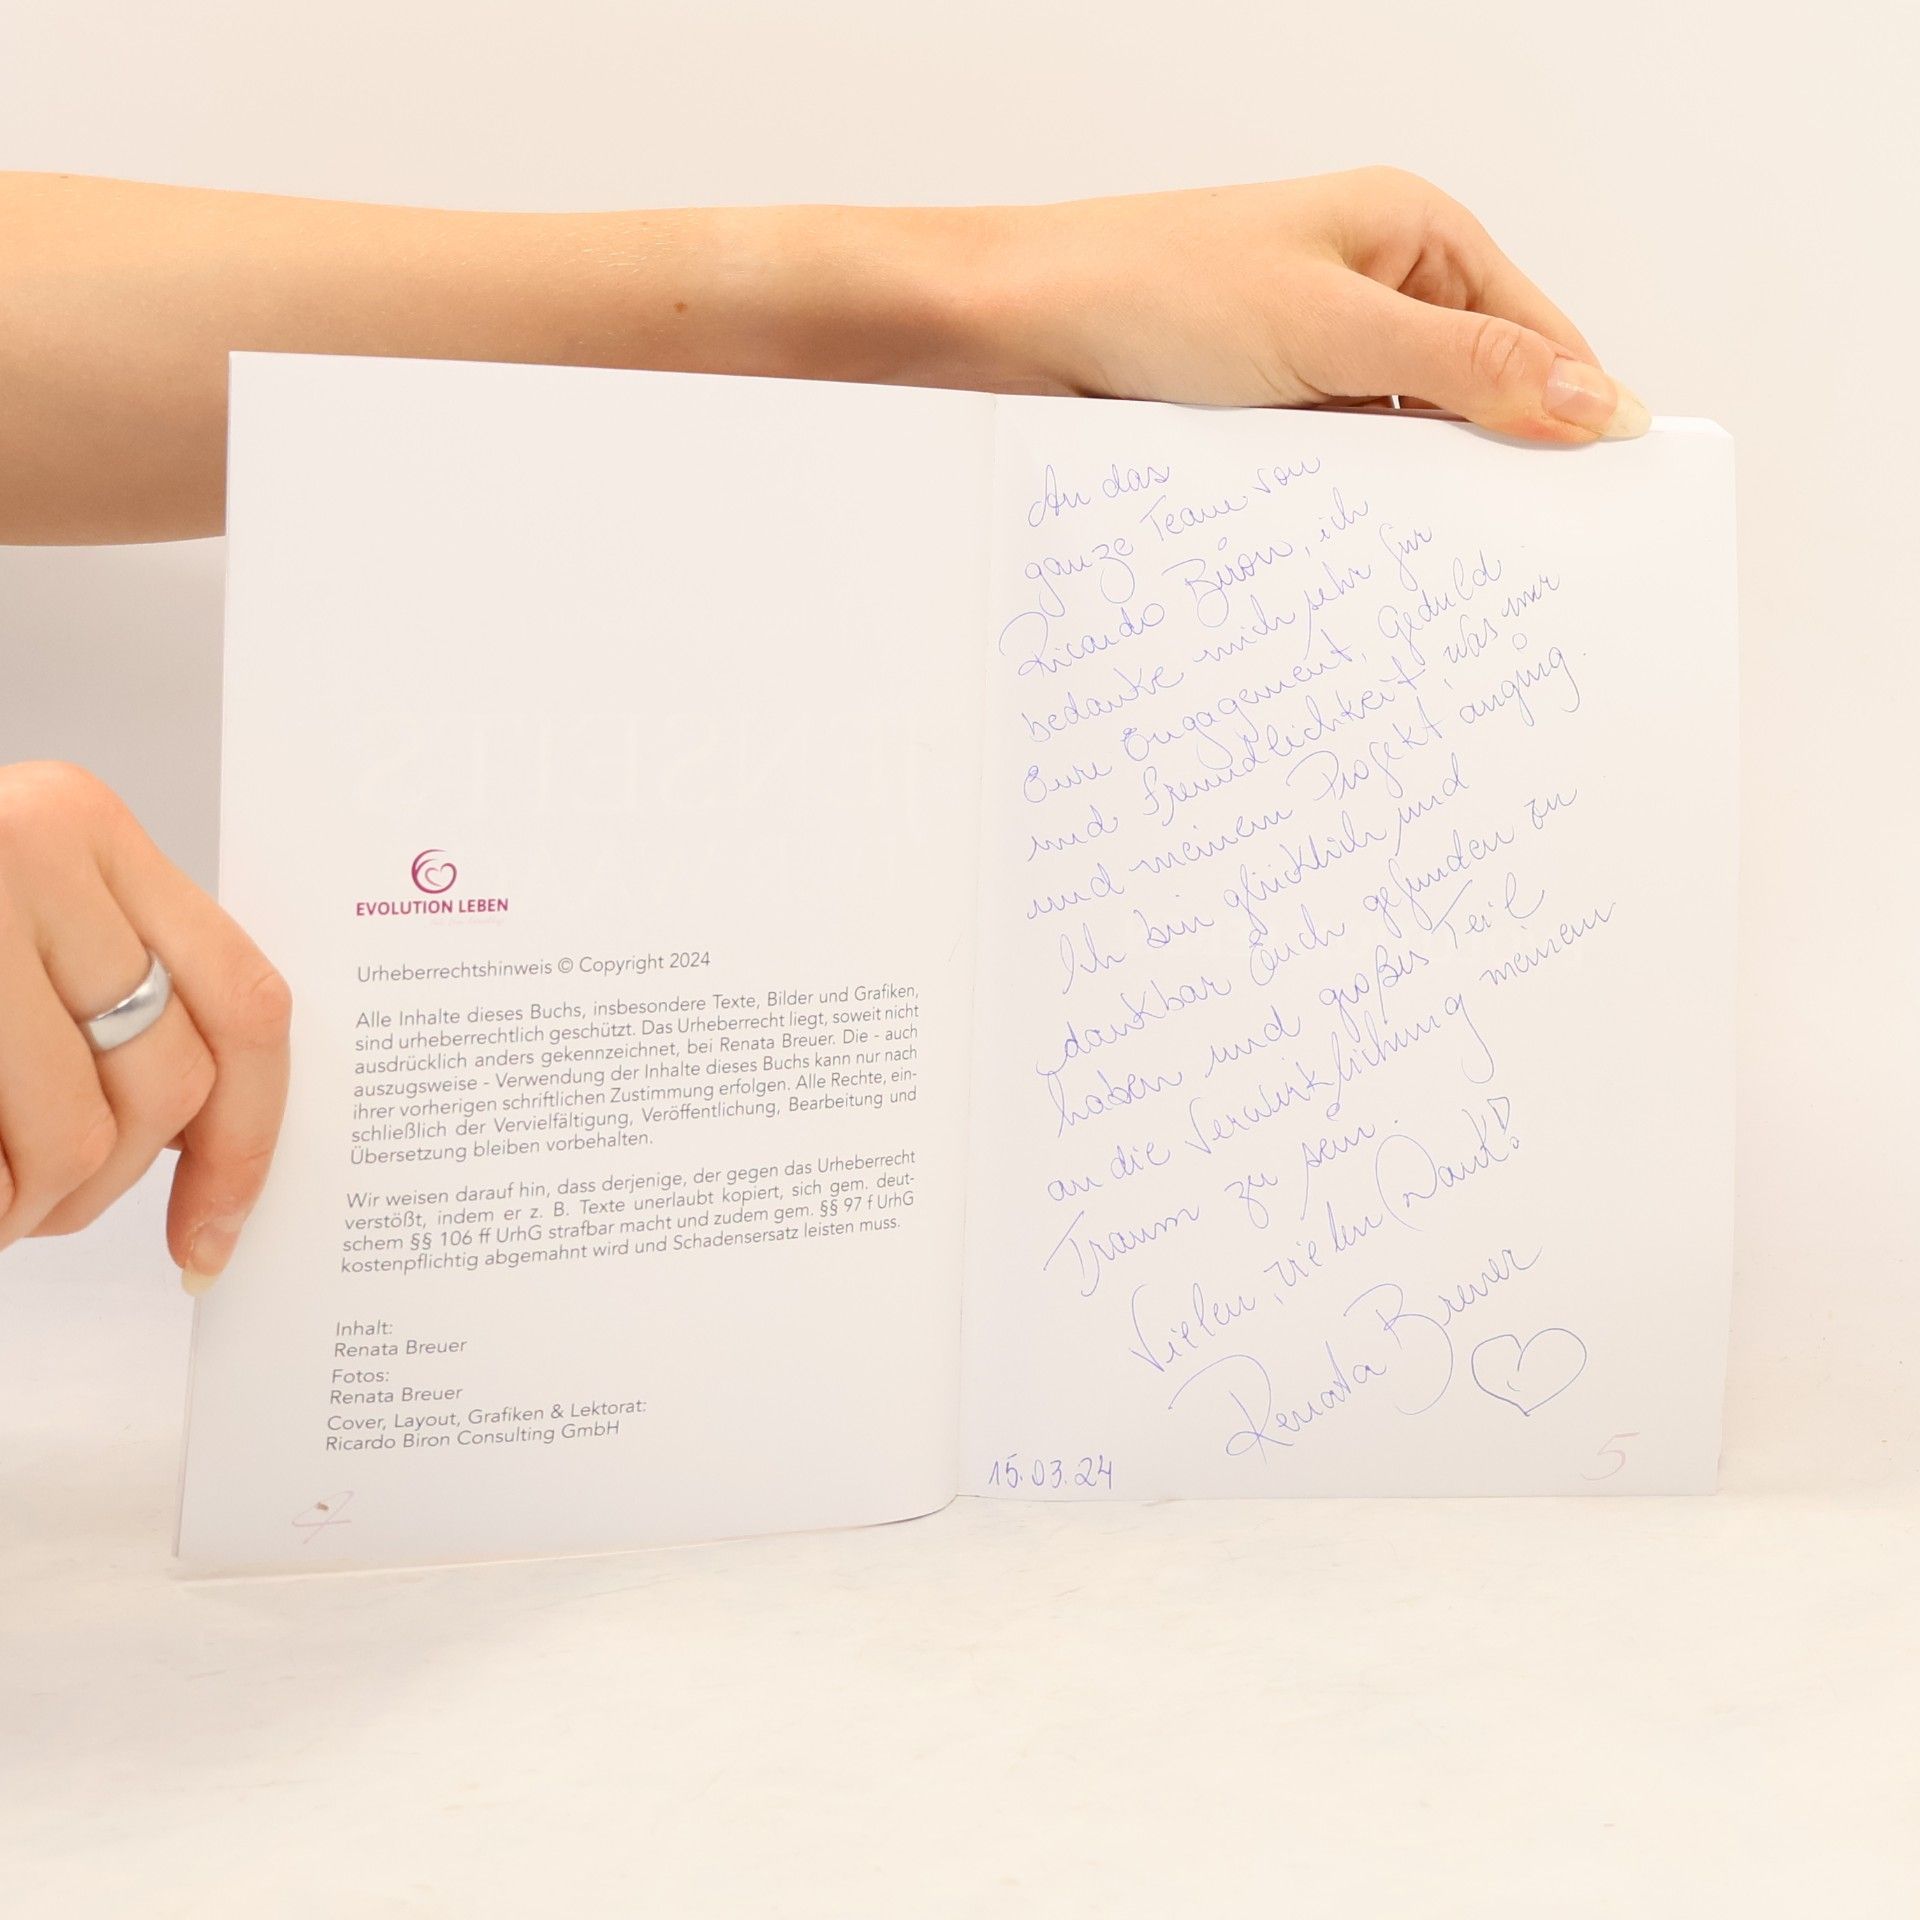 EVOLUTION LEBEN
Urheberrechtshinweis © Copyright 2024
Alle Inhalte dieses Buchs, insbesondere Texte, Bilder und Grafiken,
sind urheberrechtlich geschützt. Das Urheberrecht liegt, soweit nicht
ausdrücklich anders gekennzeichnet, bei Renata Breuer. Die - auch
auszugsweise - Verwendung der Inhalte dieses Buchs kann nur nach
ihrer vorherigen schriftlichen Zustimmung erfolgen. Alle Rechte, ein-
schließlich der Vervielfältigung, Veröffentlichung, Bearbeitung und
Übersetzung bleiben vorbehalten.
Wir weisen darauf hin, dass derjenige, der gegen das Urheberrecht
verstößt, indem er z. B. Texte unerlaubt kopiert, sich gem. deut-
schem §§ 106 ff UrhG strafbar macht und zudem gem. §§ 97 f UrhG
kostenpflichtig abgemahnt wird und Schadensersatz leisten muss.
Inhalt:
Renata Breuer
Fotos:
Renata Breuer
Cover, Layout, Grafiken & Lektorat:
Ricardo Biron Consulting GmbH
An das
ganze Team von
Ricardo Biron, ich
bedanke mich sehr für
Eure Engagement, Geduld
und Freundlichkeit, was mir
und meinem Projekt anging.
Ich bin glücklich und
dankbar Euch gefunden zu
haben und großes Teil
an die Verwirklichung meinem
Traum zu sein.
Vielen, vielen Dank!
Renata Breuer
15.03.24
5